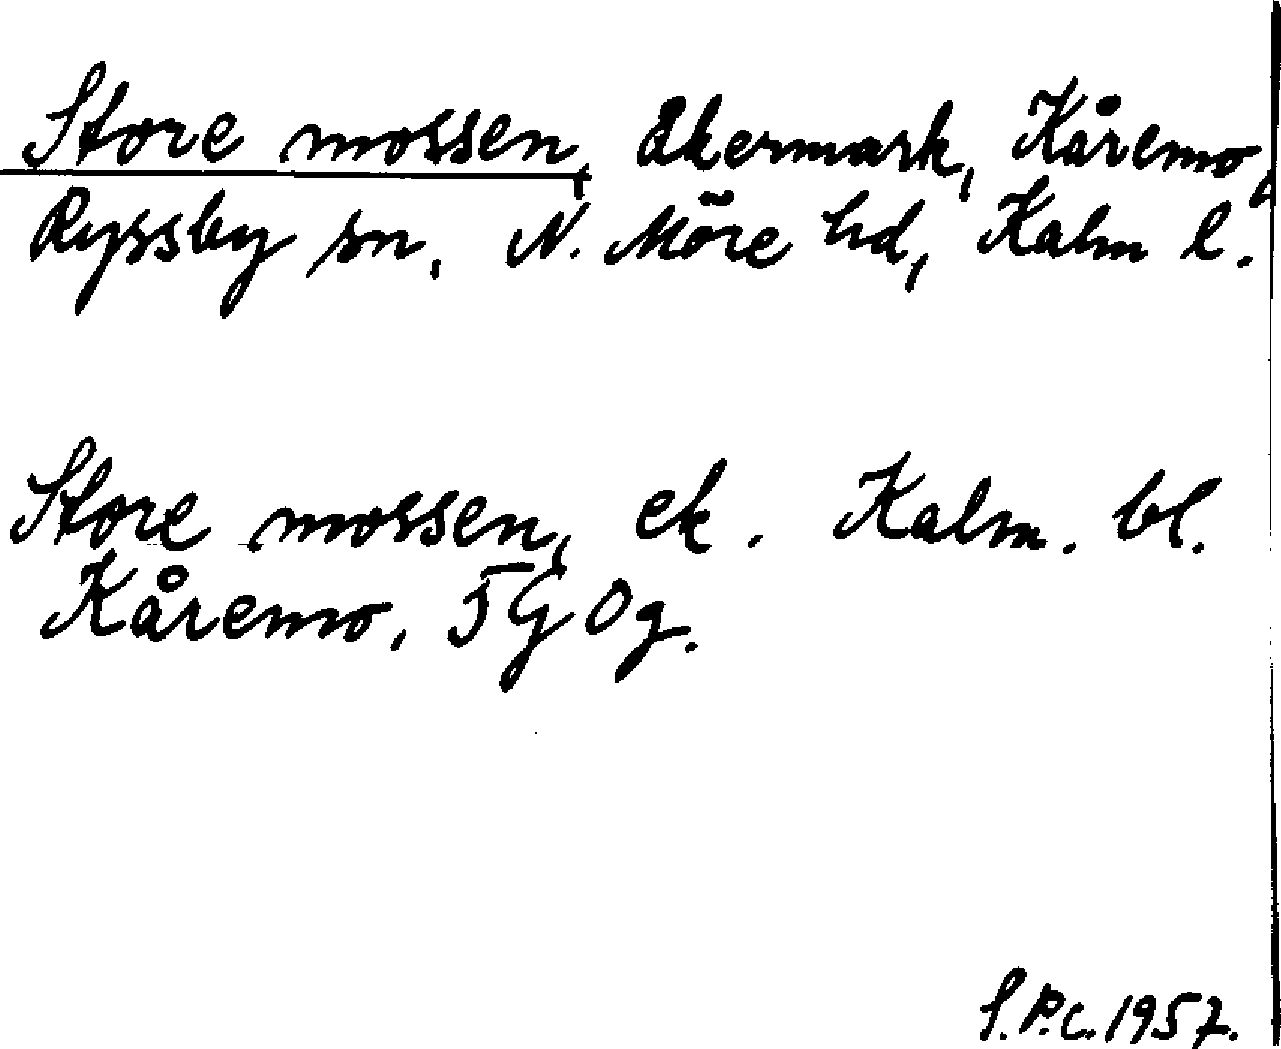 Store mossen, Ekermark, Kåremo,
Ryssby sn, N. Möre hd, Kalm l.
Store mossen, ek. Kalm. bl.
Kåremo, 5G0g.
S.P.C. 1957.